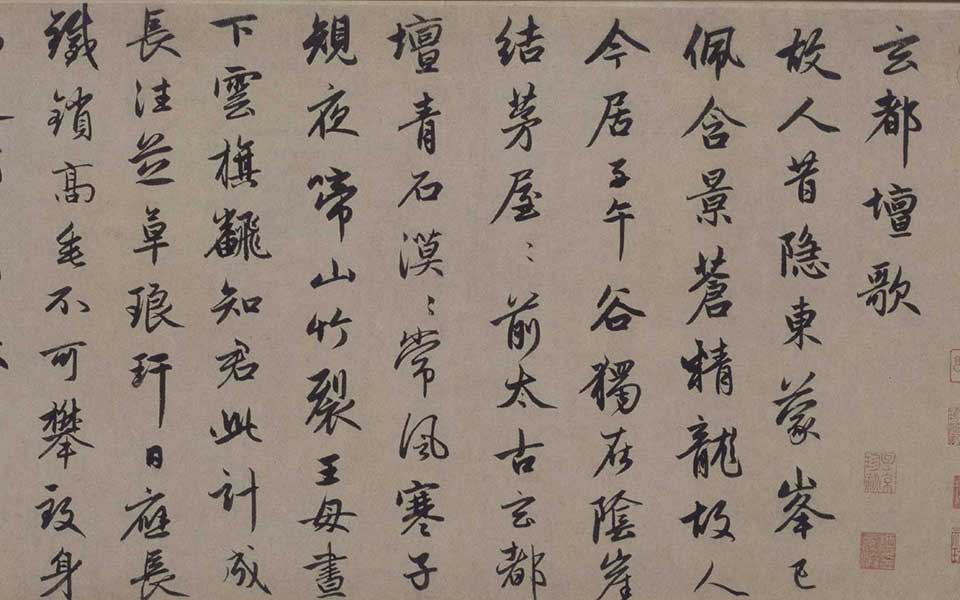 玄都壇歌
故人昔隱東蒙峯已
佩含景蒼精龍故人
今居子午谷獨在陰崖
結茅屋〻前太古玄都
壇青石漠〻常風寒子
規夜啼山竹裂王母晝
下雲旗飜知君此計成
長往芝草琅玕日應長
鐵鎖高垂不可攀致身